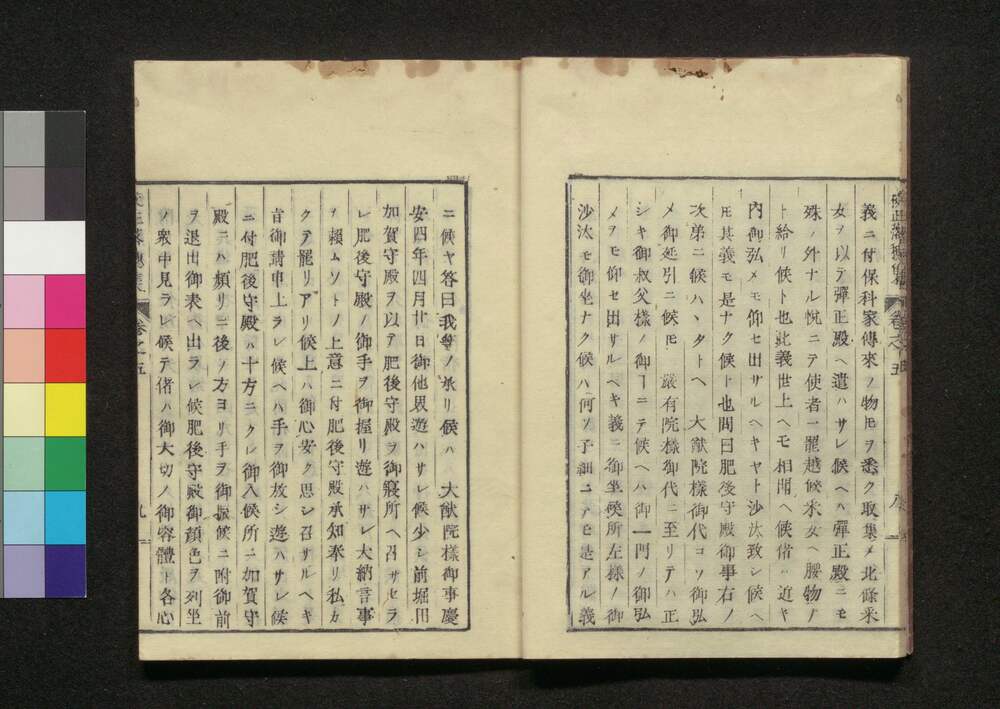 義ニ付保科家傳來ノ物𪜈ヲ悉ク取集メ北條采
女ヲ以テ彈正殿ヘ遣ハサレ候ヘハ彈正殿ニモ
殊ノ外ナル悅ニテ使者ニ罷越候采女ヘ腰物ナ
ト給リ候ト也此義世上ヘモ相聞ヘ候偖ハ近キ
內御弘メモ仰セ出サルヘキヤト沙汰致シ候ヘ
𪜈其義モ是ナク候ト也問曰肥後守殿御事右ノ
次第ニ候ハヽタトヘ 大猷院樣御代コソ御弘
メ御延引ニ候𪜈 嚴有院樣御代ニ至リテハ正
シキ御叔父樣ノ御ヿニテ候ヘハ御一門ノ御弘
メヲモ仰セ出サルヘキ義ニ御坐候所左樣ノ御
沙汰モ御坐ナク候ハ何ソ子細ニテモ是アル義
ニ候ヤ答曰我等ノ承リ候ハ 大猷院樣御事慶
安四年四月廿日御他界遊ハサレ候少シ前堀田
加賀守殿ヲ以テ肥後守殿ヲ御寢所ヘ召サセラ
レ肥後守殿ノ御手ヲ御握リ遊ハサレ大納言事
ヲ賴ムソトノ上意ニ付肥後守殿承知奉リ私カ
クテ罷リアリ候上ハ御心安ク思シ召サルヘキ
旨御請申上ラレ候ヘハ手ヲ御放シ遊ハサレ候
ニ付肥後守殿ハ十方ニクレ御入候所ニ加賀守
殿ニハ頻リニ後ノ方ヨリ手ヲ御振候ニ附御前
ヲ退出御表ヘ出ラレ候肥後守殿御顏色ヲ列坐
ノ衆中見ラレ候テ偖ハ御大切ノ御容體ト各心
卷之五
九